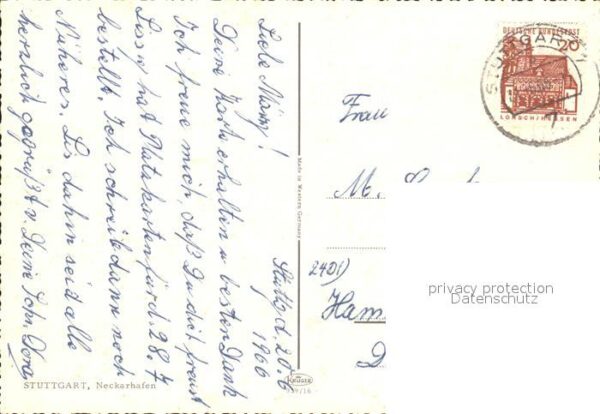 Stuttg. d. 20.6
1966
Liebe Mämy!
Deine Karte erhalten u. besten Dank
Ich freue mich, daß Du dich freust
Lissy hat Platzkarten für d. 28.7
bestellt. Ich schreib dann noch
Näheres. Bis dahin seid alle
herzlich gegrüßt v. Deine Schw. Dora
STUTTGART, Neckarhafen
Made in Western Germany
KRÜGER
939/16
DEUTSCHE BUNDESPOST
20
LORSCH/HESSEN
STUTTGART
Frau
M.
2401)
Ham
D
privacy protection
Datenschutz